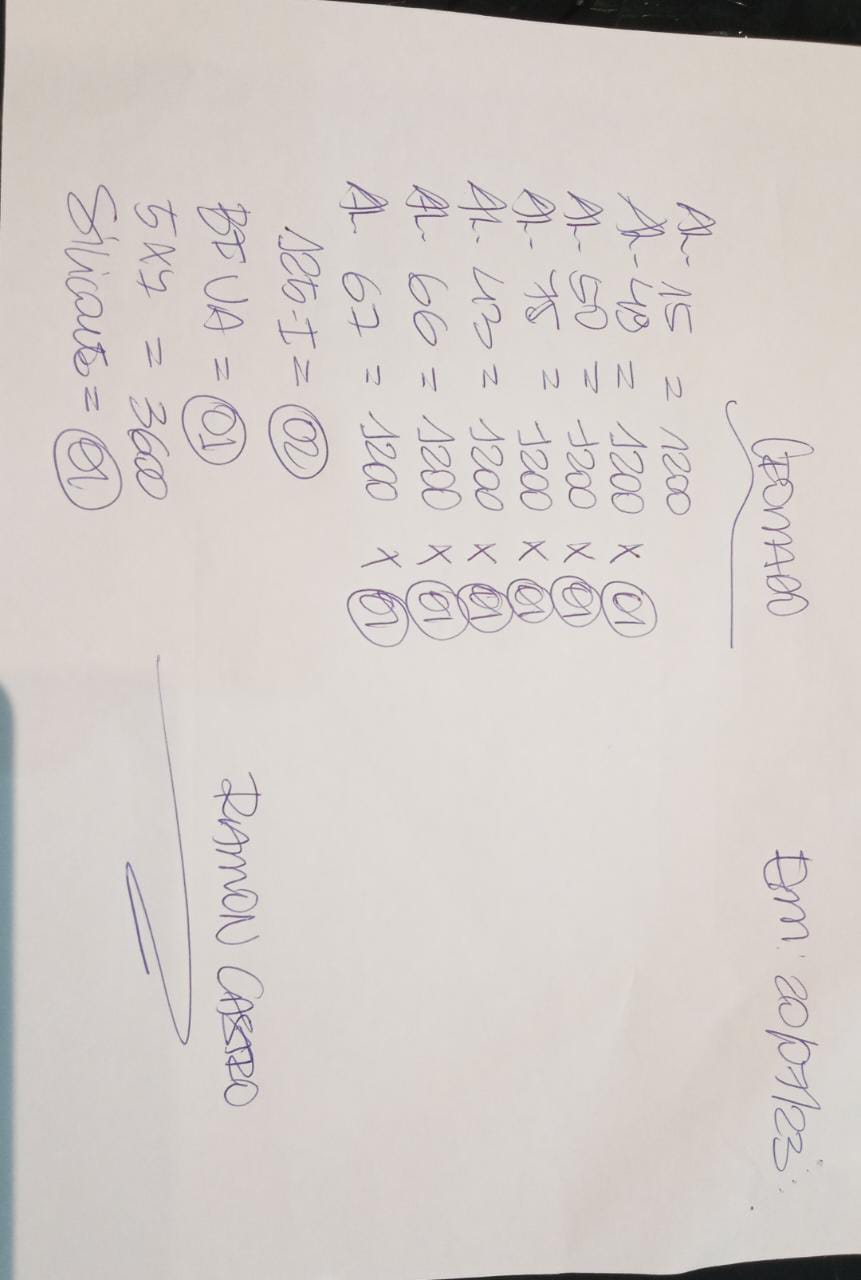 Em: 20/07/23
AL-15 = 1200
AL-40 = 1200 x 01
AL-50 = 1200 x 01
AL-75 = 1200 x 01
AL-43 = 1200 x 01
AL-66 = 1200 x 01
AL 67 = 1200 x 01
125-I = 02
UA = 01
5x7 = 3600
Silicanto = 01
RAMON CASTRO